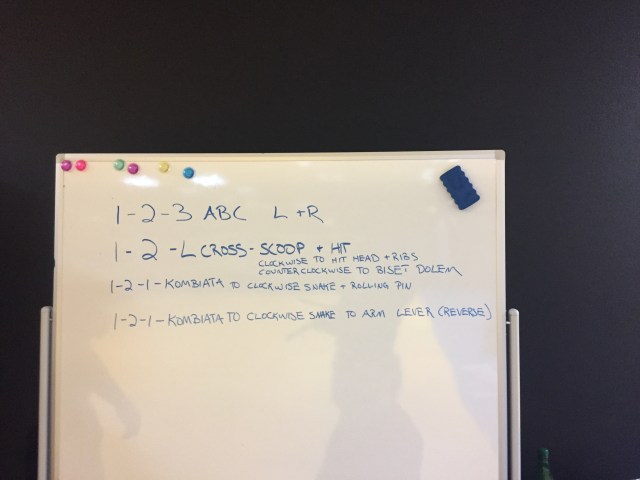 1-2-3 ABC L+R
1-2-L CROSS-SCOOP + HIT
CLOCKWISE TO HIT HEAD + RIBS
COUNTERCLOCKWISE TO BISET DOLEM
1-2-1-KOMBIATA TO CLOCKWISE SNAKE + ROLLING PIN
1-2-1-KOMBIATA TO CLOCKWISE SNAKE TO ARM LEVER (REVERSE)